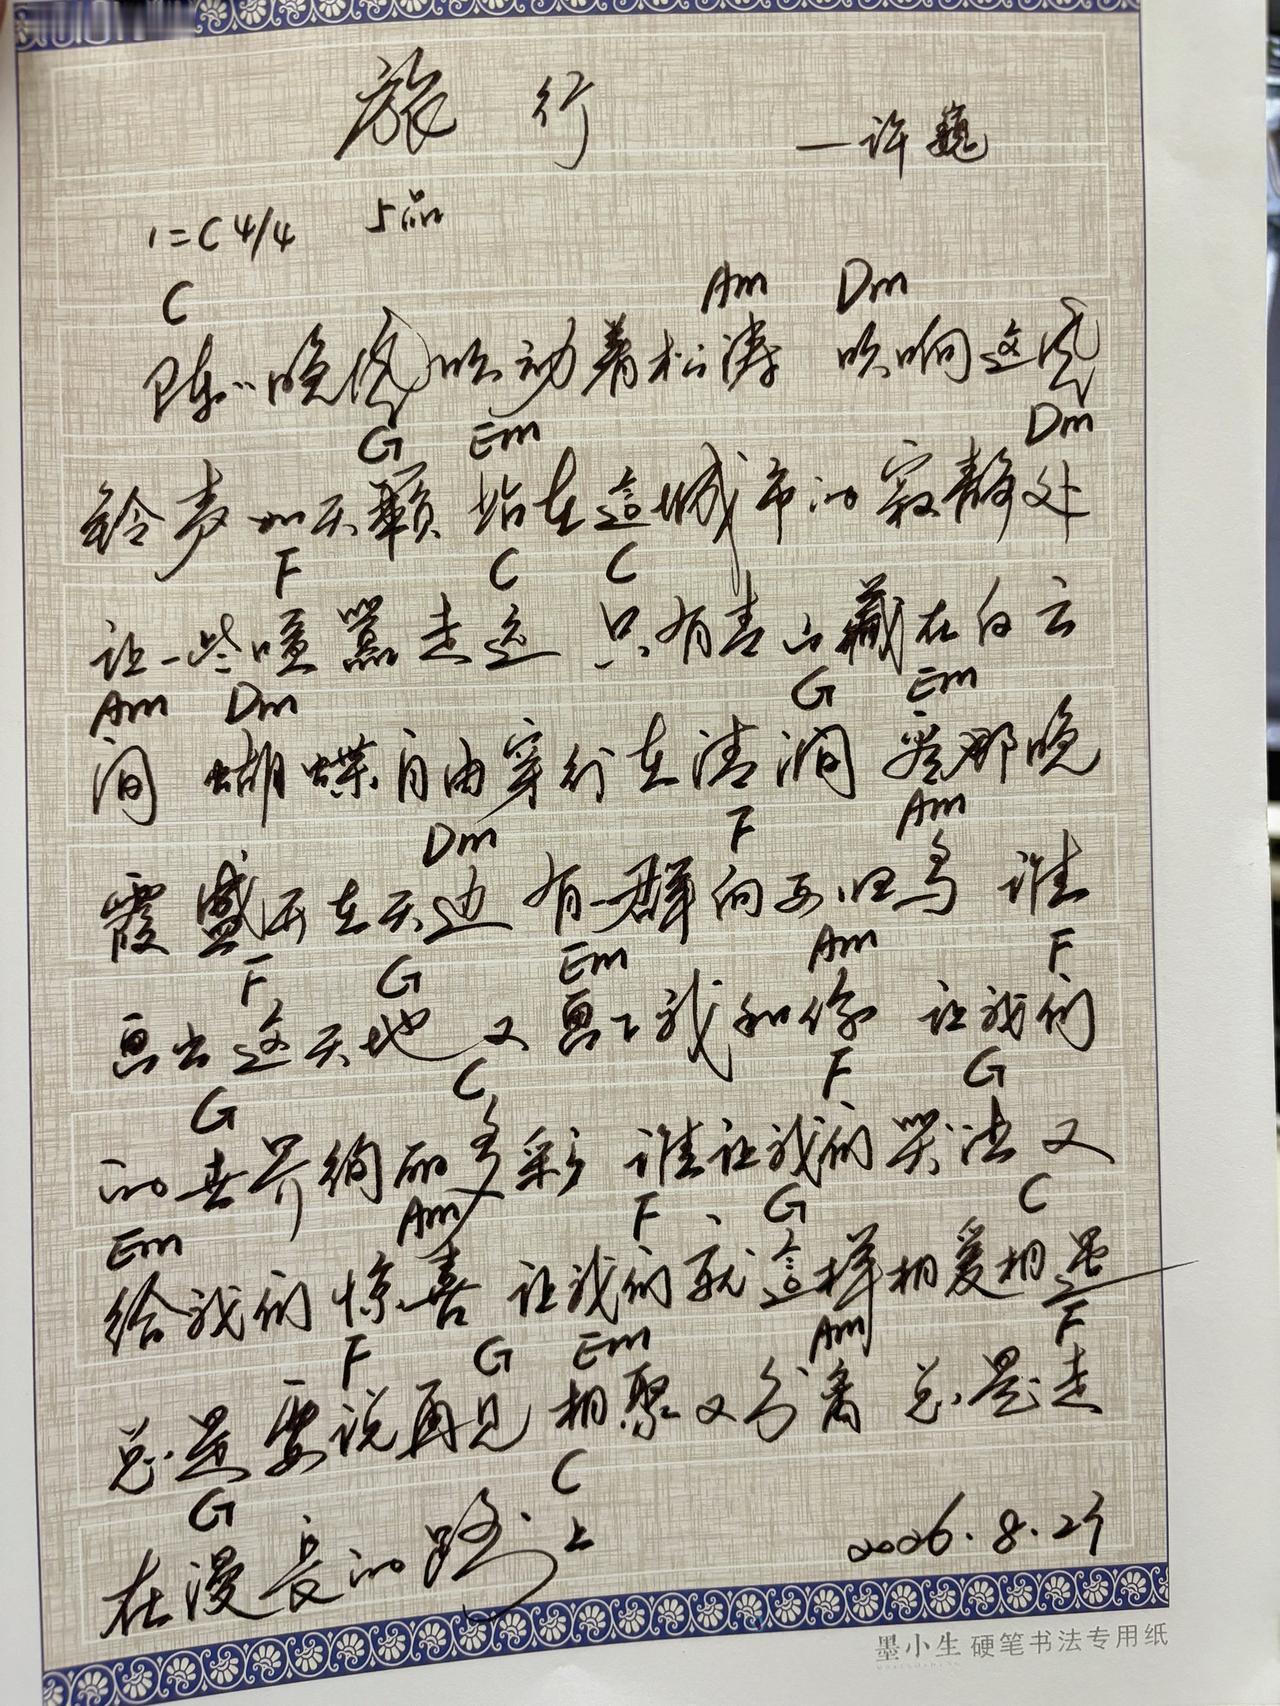 旅 行
—许巍
1=C 4/4 5品
C Am Dm
阵阵晚风吹动着松涛 吹响这风
G Em Dm
铃声如天籁 站在這城市的寂静处
F C C
让一些喧嚣走远 只有青山藏在白云
Am Dm G Em
间 蝴蝶自由穿行在清涧 看那晚
Dm F Am
霞盛开在天边 有一群向西归鸟 谁
F G Em Am F
画出这天地 又画下我和你 让我们
G C F G
的世界绚丽多彩 谁让我们哭泣 又
Em Am F G C
给我们惊喜 让我们就這样相爱相遇
F G Em Am F
总是要说再见 相聚又分离 总是走
G C
在漫長的路上
2026.8.27
墨小生 硬笔书法专用纸